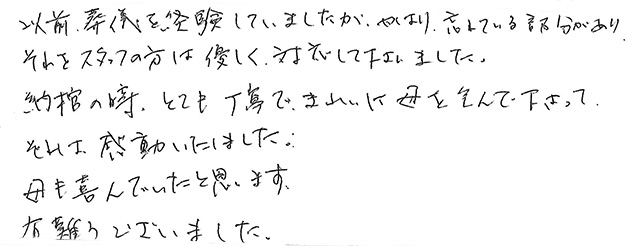 以前、葬儀を経験していましたが、やはり、忘れている部分があり
それをスタッフの方は優しく対応して下さいました。
納棺の時、とても丁寧で、きれいに母を包んで下さって
それは感動いたしました。
母も喜んでいたと思います。
有難うございました。